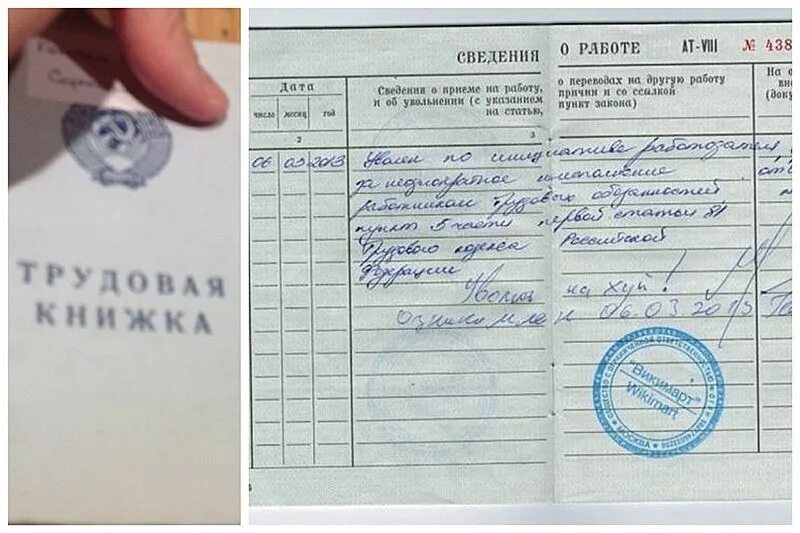 ТРУДОВАЯ
КНИЖКА
СВЕДЕНИЯ О РАБОТЕ АТ-VIII № 438
Дата
число месяц год
Сведения о приеме на работу, о переводах на другую работу
и об увольнении (с указанием причин и со ссылкой
на статью, пункт закона)
На о
вне
(доку
2 3
06 03 2013 Уволен по инициативе работодателя
за неоднократное неисполнение
работником трудовых обязанностей,
пункт 5 части первой статьи 81
Трудового кодекса Российской
Федерации
Уволен на хуй!
Ознакомлен 06.03 2013
ОБЩЕСТВО С ОГРАНИЧЕННОЙ ОТВЕТСТВЕННОСТЬЮ
"Викимарт"
Wikimart
МОСКВА